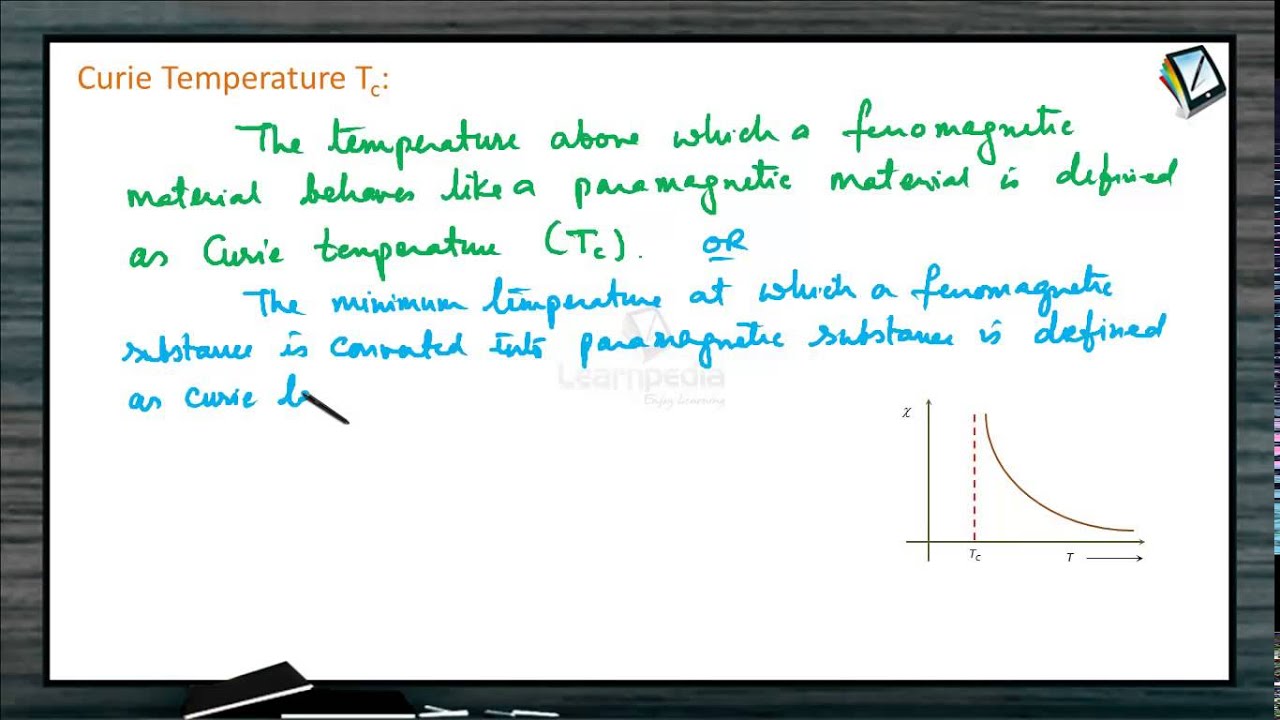 Curie Temperature Tc:
The temperature above which a ferromagnetic
material behaves like a paramagnetic material is defined
as Curie temperature (Tc). OR
The minimum temperature at which a ferromagnetic
substance is converted into paramagnetic substance is defined
as curie
Learnpedia
Enjoy Learning
χ
Tc
T